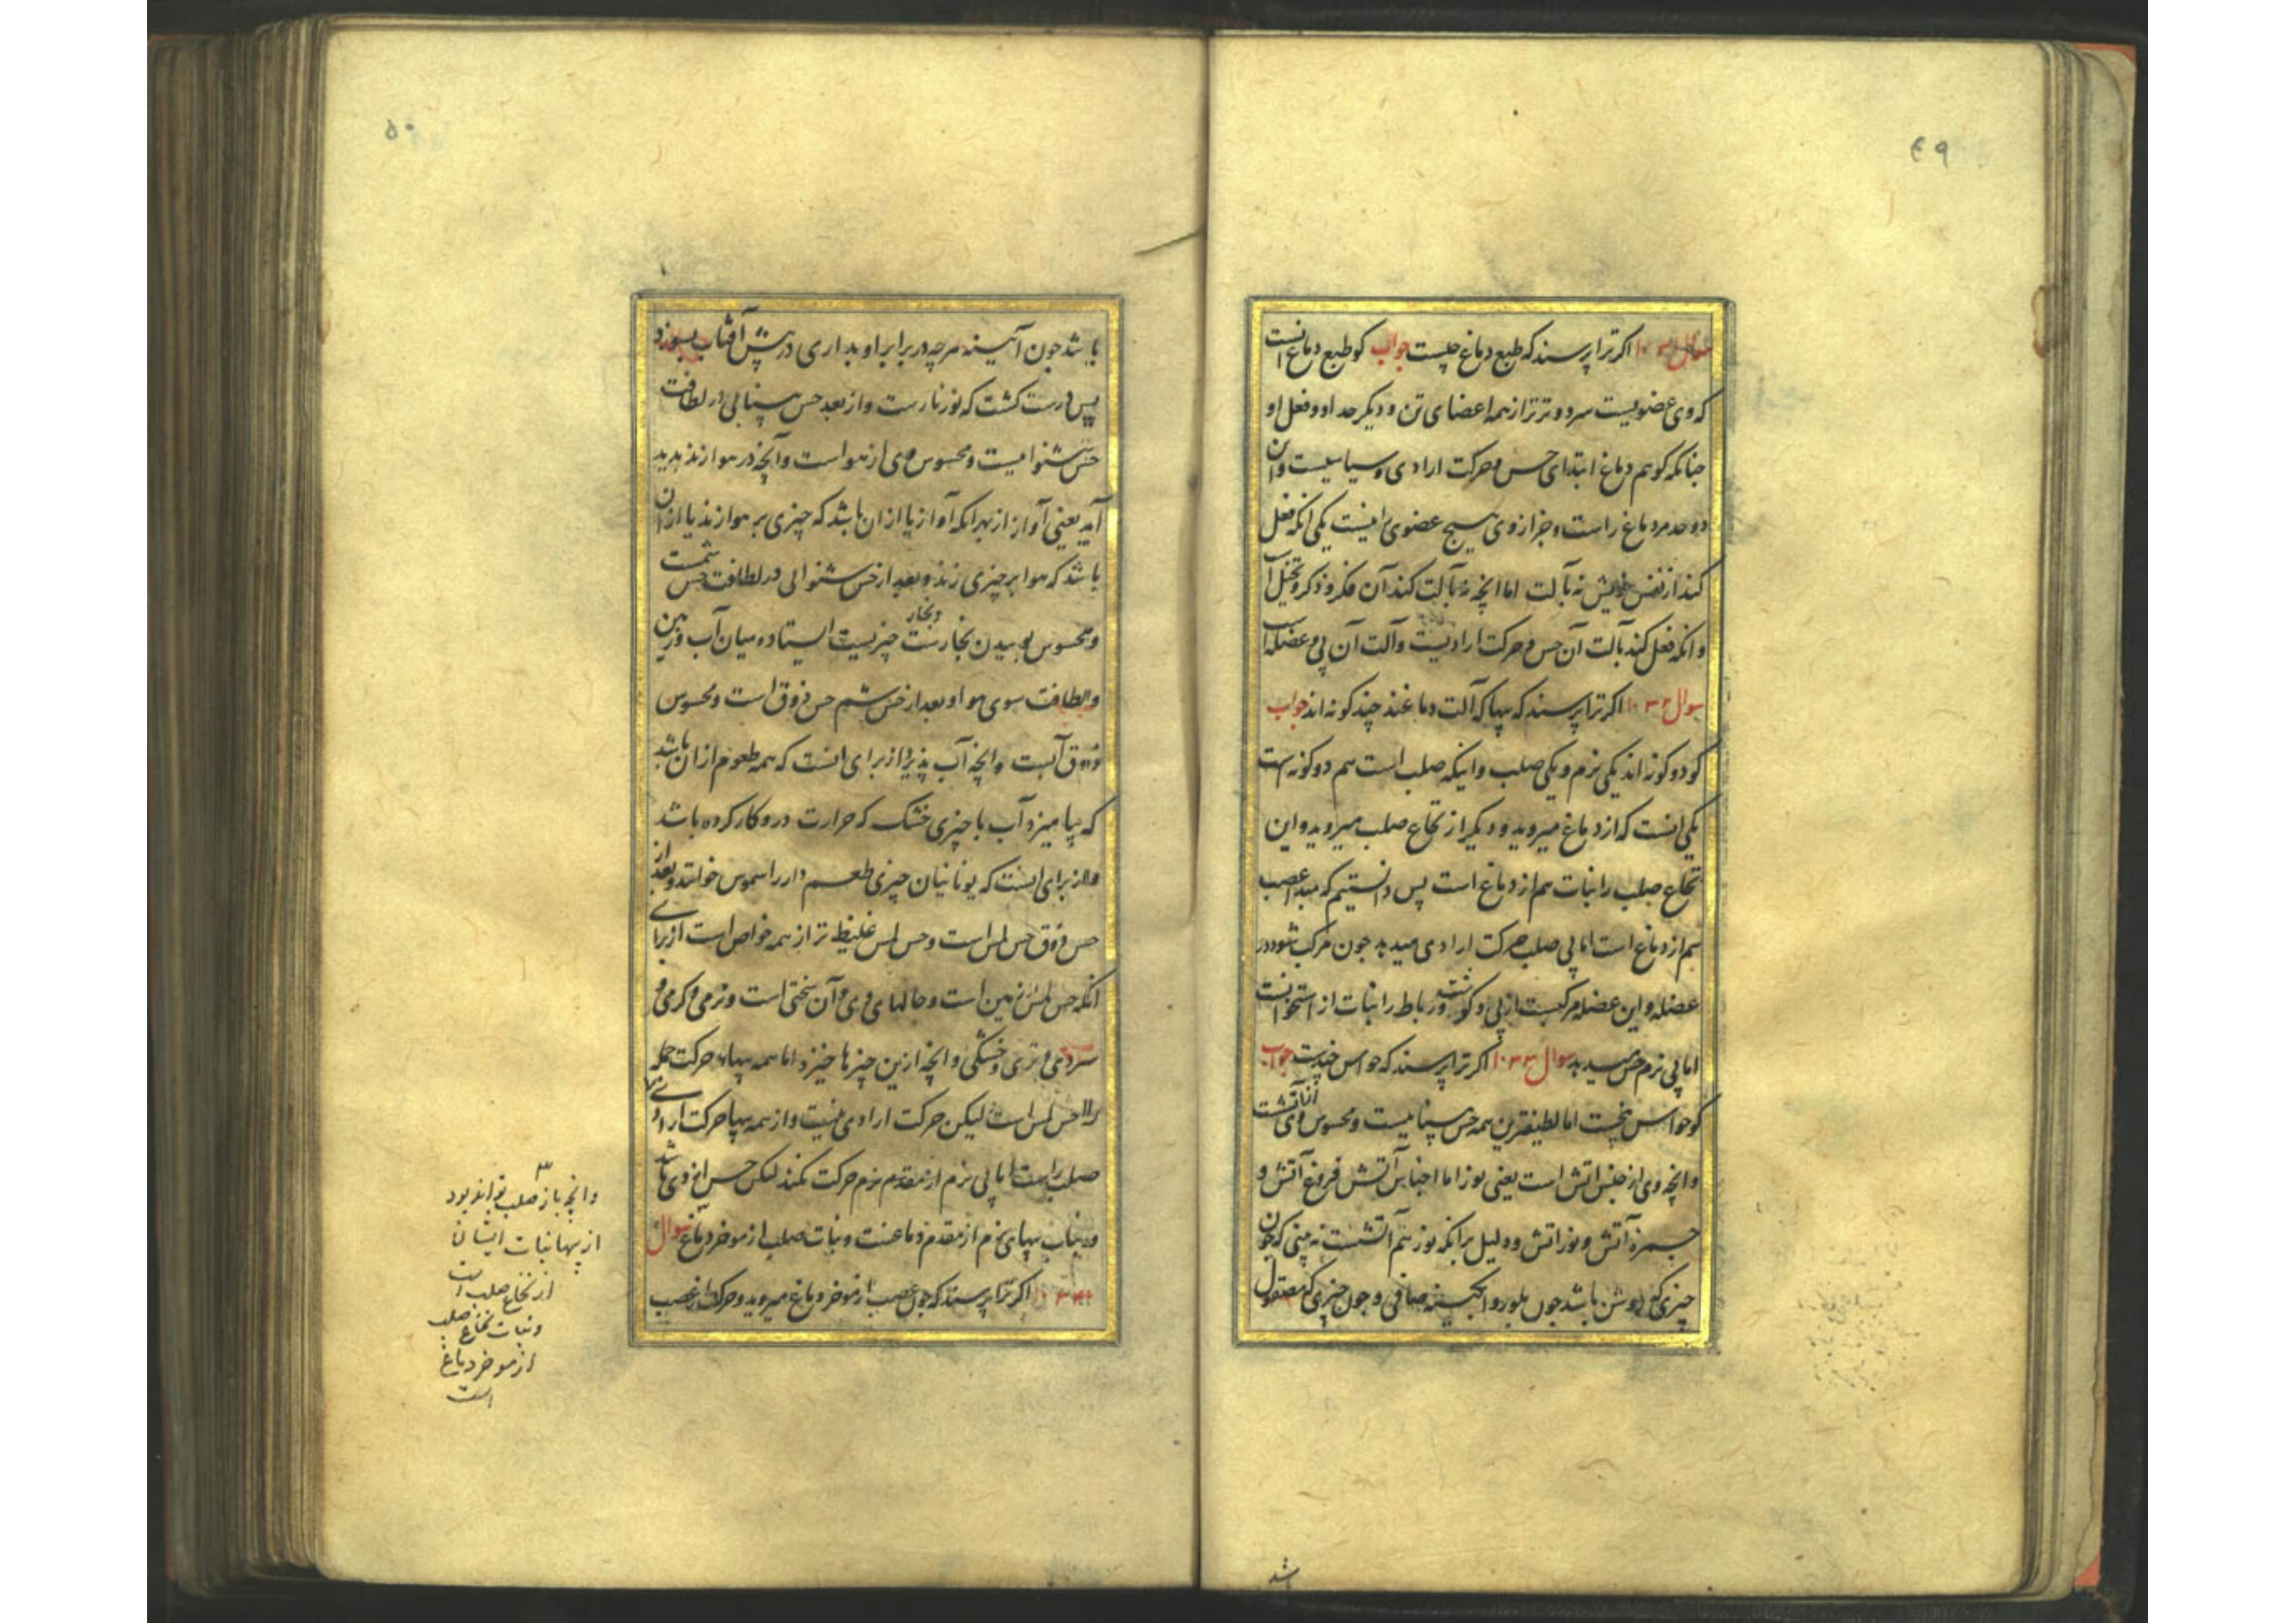 ۴۹
سوال ۱۰۳۱ اکر ترا پرسند که طبع دماغ چیست جواب کو طبع دماغ انست
که وی عضویست سرد و ترتر از همه اعضای تن و دیکر حد او و فعل او
جنانکه کوهم دماغ ابتدای حس و حرکت ارادی و سیاسیست وان
دو حد مر دماغ راست و جز از وی هیچ عضوی را نیست یکی انکه فعل
کند از نفس خویش نه بآلت اما انچه نه بآلت کند آن فکر و ذکر و تخیل است
و انکه فعل کند بآلت آن حس و حرکت ارادیست و آلت آن پی و عضله است
سوال ۱۰۳۲ اکر ترا پرسند که پیها که آلت دماغند چند کونه اند جواب
کو دو کونه اند یکی نرم و یکی صلب و اینکه صلب است هم دو کونه است
یکی انست که از دماغ میروید و دیکر از نخاع صلب میروید و این
نخاع صلب را نبات هم از دماغ است پس دانستیم که مبدا عصب
هم از دماغ است اما پی صلب حرکت ارادی میدهد جون مرکب شود در
عضله و این عضله مرکبست از پی و کوشت و رباط را نبات از استخوانست
اما پی نرم حس میدهد سوال ۱۰۳۳ اکر ترا پرسند که حواس چندست جواب
کو حواس پنجست اما لطیفترین همه حس بینائیست و محسوس وی آتشست
و انچه وی از جنس اتش است یعنی نور اما اجناس آتش فروغ آتش و
جمره آتش و نور اتش و دلیل برانکه نور هم آتشست نه بینی که جون
چیزی که روشن باشد جون بلور و ابکینه صافی و جون چیزی که مصقول
شد
۵۰
باشد جون آیینه هرچه در برابر او بداری در پیش آفتاب بسوزد
پس درست کشت که نور نارست و از بعد حس بینائی در لطافت
حس شنوائیست و محسوس وی از هواست و آنچه در هوا زند پدید
آید یعنی آواز از بهر انکه آواز یا از ان باشد که چیزی بر هوا زند یا از ان
باشد که هوا بر چیزی زند و بعد از حس شنوائی در لطافت حس شمست
و محسوس بوییدن بخارست و بخار چیزیست ایستاده میان آب و زمین
و لطافت سوی هوا و بعد از حس شم حس ذوق است و محسوس
ذوق آبست و انچه آب پذیرد از برای انست که همه طعوم از ان باشد
که بیامیزد آب با چیزی خشک که حرارت درو کار کرده باشد
و از برای اینست که یونانیان چیزی طعم دار را سموس خوانند و بعد از
حس ذوق حس لمس است و حس لمس غلیظ تر از همه حواس است از برای
انکه حس لمس زمین است و حالهای وی و آن سختی است و نرمی و کرمی و
سردی و تری و خشکی و انچه ازین چیزها خیزد اما همه پیها حرکت جمله
را حس لمس است لیکن حرکت ارادی نیست و از همه پیها حرکت ارادی
صلب راست اما پی نرم از مقدم نرم حرکت نکند لیکن حس از وی باشد
و نبات پیهای نرم از مقدم دماغست و نبات صلب از موخر دماغ سوال
۱۰۳۴ اکر ترا پرسند که جون عصب از موخر دماغ میروید و حرکت از عصب
۳
و انچه باز صلب تواند بود
از پیها نبات ایشان
از نخاع صلب است
و نبات نخاع صلب
از موخر دماغ
است